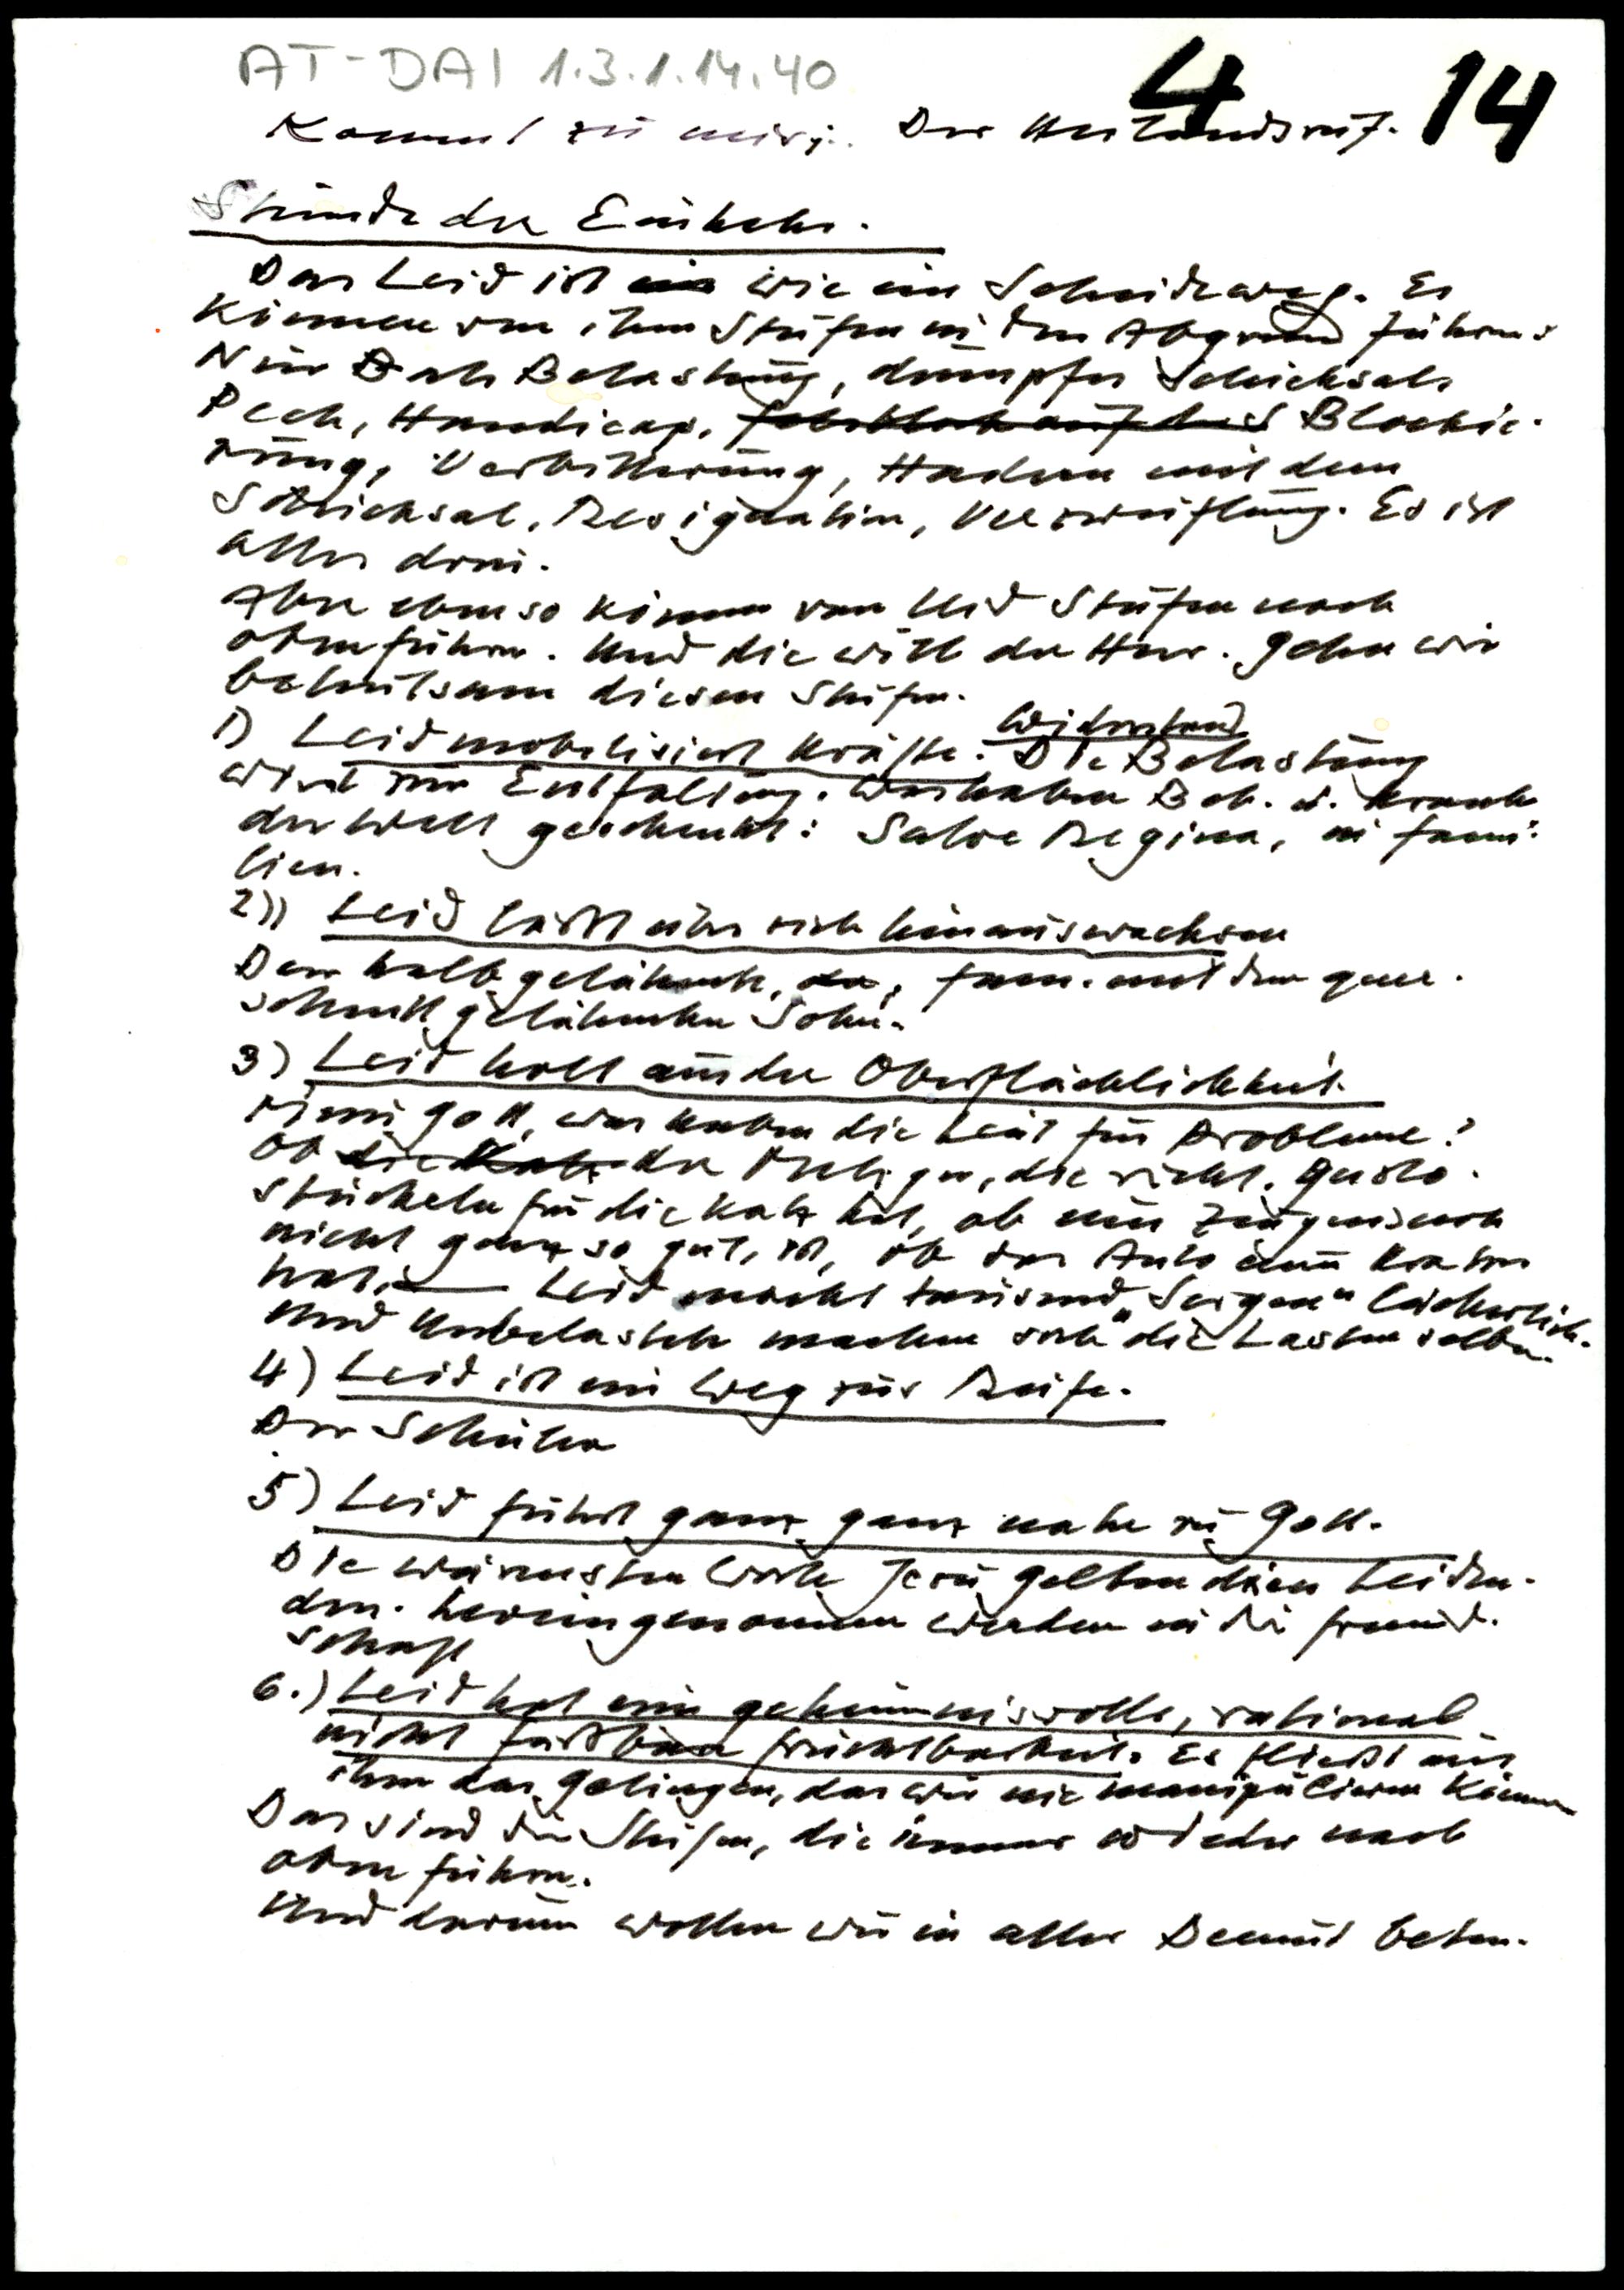 AT-DAI 1.3.1.14.40
4 14
Kommt zu mir: Der Heilandsruf.
Stunde der Einkehr.
Das Leid ist wie ein Scheideweg. Es
können von ihm Stufen in den Abgrund führen:
Nur als Belastung, dumpfes Schicksal,
Pech, Handicap, Blockie-
rung, Verbitterung, Hadern mit dem
Schicksal, Resignation, Verzweiflung. Es ist
alles drin.
Aber ebenso können vom Leid Stufen nach
oben führen. Und die will der Herr. Gehn wir
behutsam diesen Stufen.
Widerstand
1) Leid mobilisiert Kräfte. Die Belastung
wird zur Entfaltung. Was haben Beh. u. Kranke
der Welt geschenkt: Salve Regina, in Fami-
lien.
2)) Leid läßt über sich hinauswachsen
Der halbgelähmte, Fam. mit dem quer-
schnittgelähmten Sohn.
3) Leid holt aus der Oberflächlichkeit.
mein Gott, was haben die Leut für Probleme?
Ob der Metzger, die richt. Gusto-
stückeln für die Katz hat, ob ein Zeugnis
nicht ganz so gut ist, ob das Auto einen Kratzer
hat, — Leid macht tausend „Sorgen" lächerlich.
Und Unbelastete machen sich die Lasten selber.
4) Leid ist ein Weg zur Reife.
Der Schüler
5) Leid führt ganz, ganz nahe zu Gott.
Die wärmsten Worte Jesu gelten den Leiden-
den. hereingenommen werden in die Freund-
schaft
6.) Leid hat eine geheimnisvolle, rational
nicht faßbare Fruchtbarkeit. Es fließt aus
ihm das Gelingen, das wir nie manipulieren können
Das sind die Stufen, die immer wieder nach
oben führen.
Und darum wollen wir in aller Demut beten.